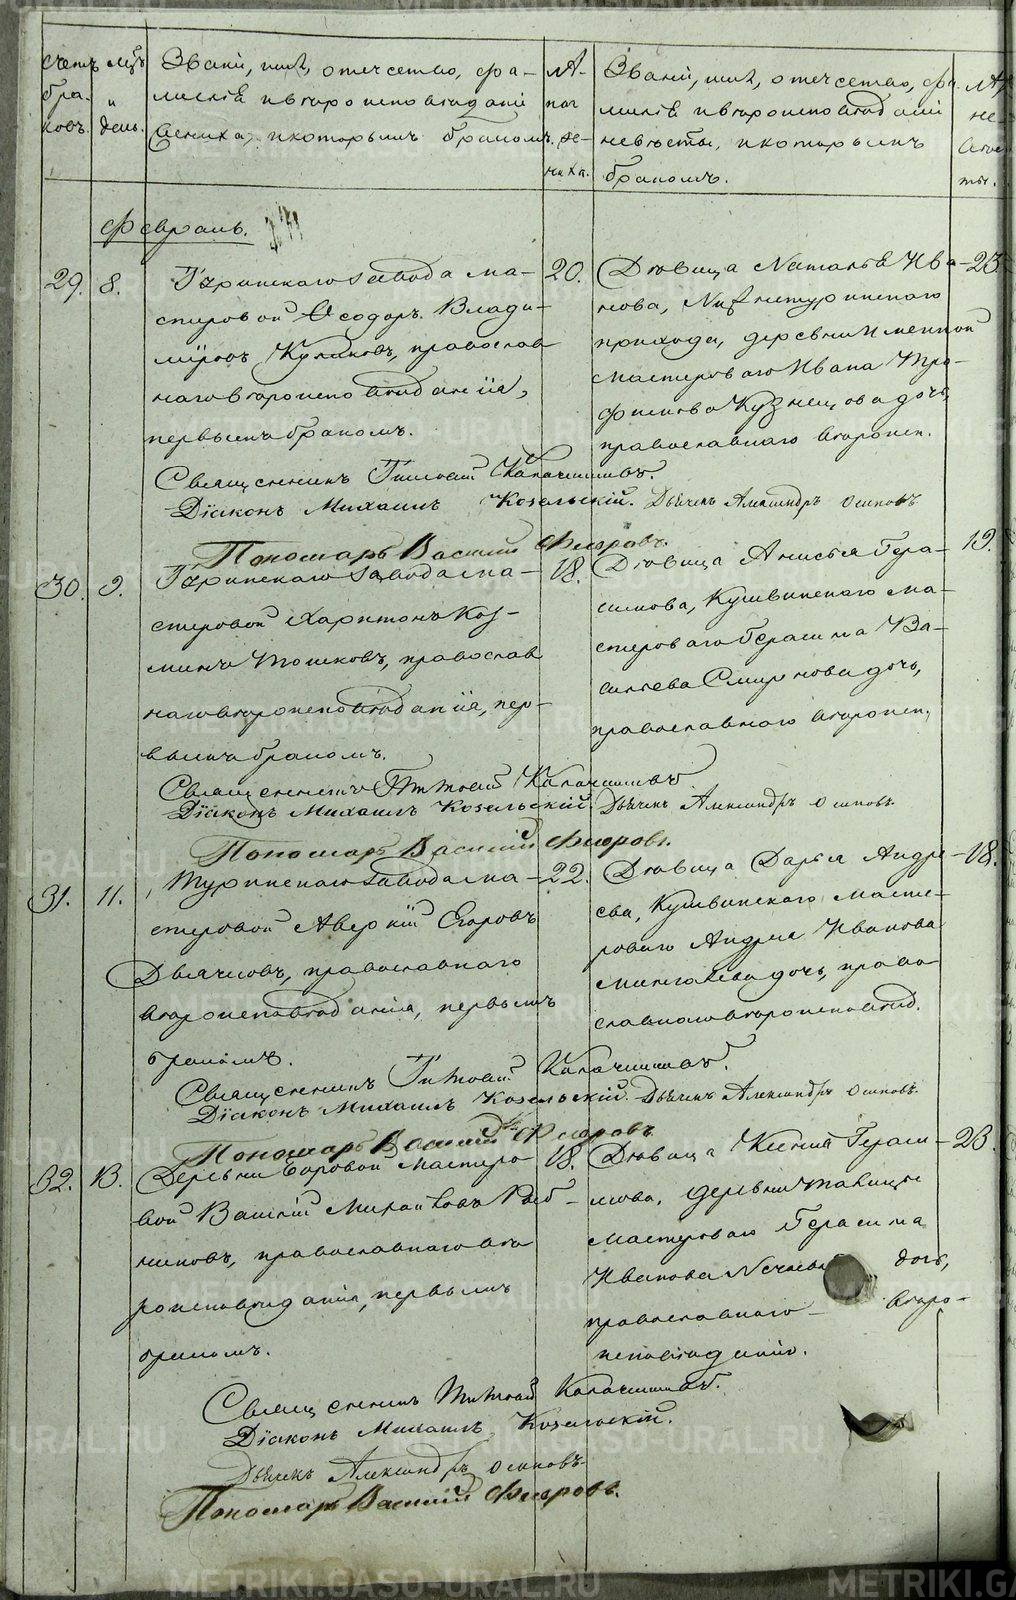 Счетъ браковъ.
Мѣсъ и день.
Званіе, имя, отечество, фа-
милія и вѣроисповѣданіе
жениха, и которымъ бракомъ.
Лѣта жениха.
Званіе, имя, отечество, фа-
милія и вѣроисповѣданіе
невѣсты, и которымъ
бракомъ.
Февраль.
29. 8.
Туринскаго завода ма-
стеровой Ѳеодоръ Влади-
міровъ Куликовъ, православ
наго вѣроисповѣданія,
первымъ бракомъ.
20.
Дѣвица Наталья Ива-
нова, Нижнетуринскаго
прихода, деревни Именной
мастероваго Ивана Тро-
фимова Кузнецова дочь,
православнаго вѣроисп.
23
Священникъ Тимоѳей Калачниковъ.
Діаконъ Михаилъ Козельскій. Дьячекъ Александръ Осиповъ
Пономарь Василій Флоровъ.
30. 9.
Туринскаго завода ма-
стеровой Харитонъ Коз-
минъ Тошковъ, православ
наго вѣроисповѣданія, пер-
вымъ бракомъ.
18.
Дѣвица Анисья Гера-
симова, Кушвинскаго ма-
стероваго Герасима Ва-
сильева Смирнова дочь,
православнаго вѣроисп.
19.
Священникъ Тимоѳей Калачниковъ
Діаконъ Михаилъ Козельскій. Дьячекъ Александръ Осиповъ
Пономарь Василій Флоровъ.
31. 11.
Туринскаго завода ма-
стеровой Аверкій Егоровъ
Дьячковъ, православнаго
вѣроисповѣданія, первымъ
бракомъ.
22.
Дѣвица Дарья Андре-
ева, Кушвинскаго масте-
роваго Андрея Иванова
дочь, право-
славнаго вѣроисповѣд.
18.
Священникъ Тимоѳей Калачниковъ.
Діаконъ Михаилъ Козельскій. Дьячекъ Александръ Осиповъ.
Пономарь Василій Флоровъ.
32. 13.
Деревни Боровой мастеро
вой Василій Михайловъ
православнаго вѣ
роисповѣданія, первымъ
бракомъ.
18.
Дѣвица Ксенія Гераси-
мова, деревни
мастероваго Герасима
Иванова дочь,
православнаго вѣро-
исповѣданія.
23.
Священникъ Тимоѳей Калачниковъ.
Діаконъ Михаилъ Козельскій.
Дьячекъ Александръ Осиповъ.
Пономарь Василій Флоровъ.
METRIKI.GASO-URAL.RU